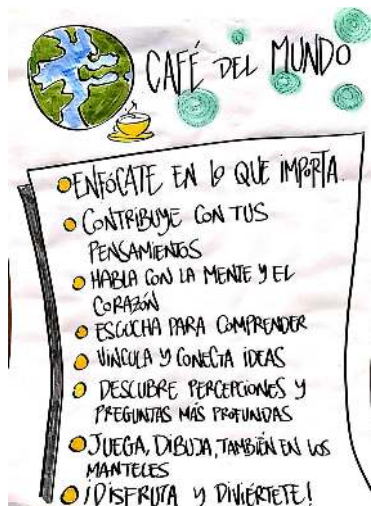 CAFÉ DEL MUNDO
ENFÓCATE EN LO QUE IMPORTA.
CONTRIBUYE CON TUS
PENSAMIENTOS
HABLA CON LA MENTE Y EL
CORAZÓN
ESCUCHA PARA COMPRENDER
VINCULA Y CONECTA IDEAS
DESCUBRE PERCEPCIONES Y
PREGUNTAS MÁS PROFUNDAS
JUEGA, DIBUJA, TAMBIÉN EN LOS
MANTELES
¡DISFRUTA Y DIVIÉRTETE!